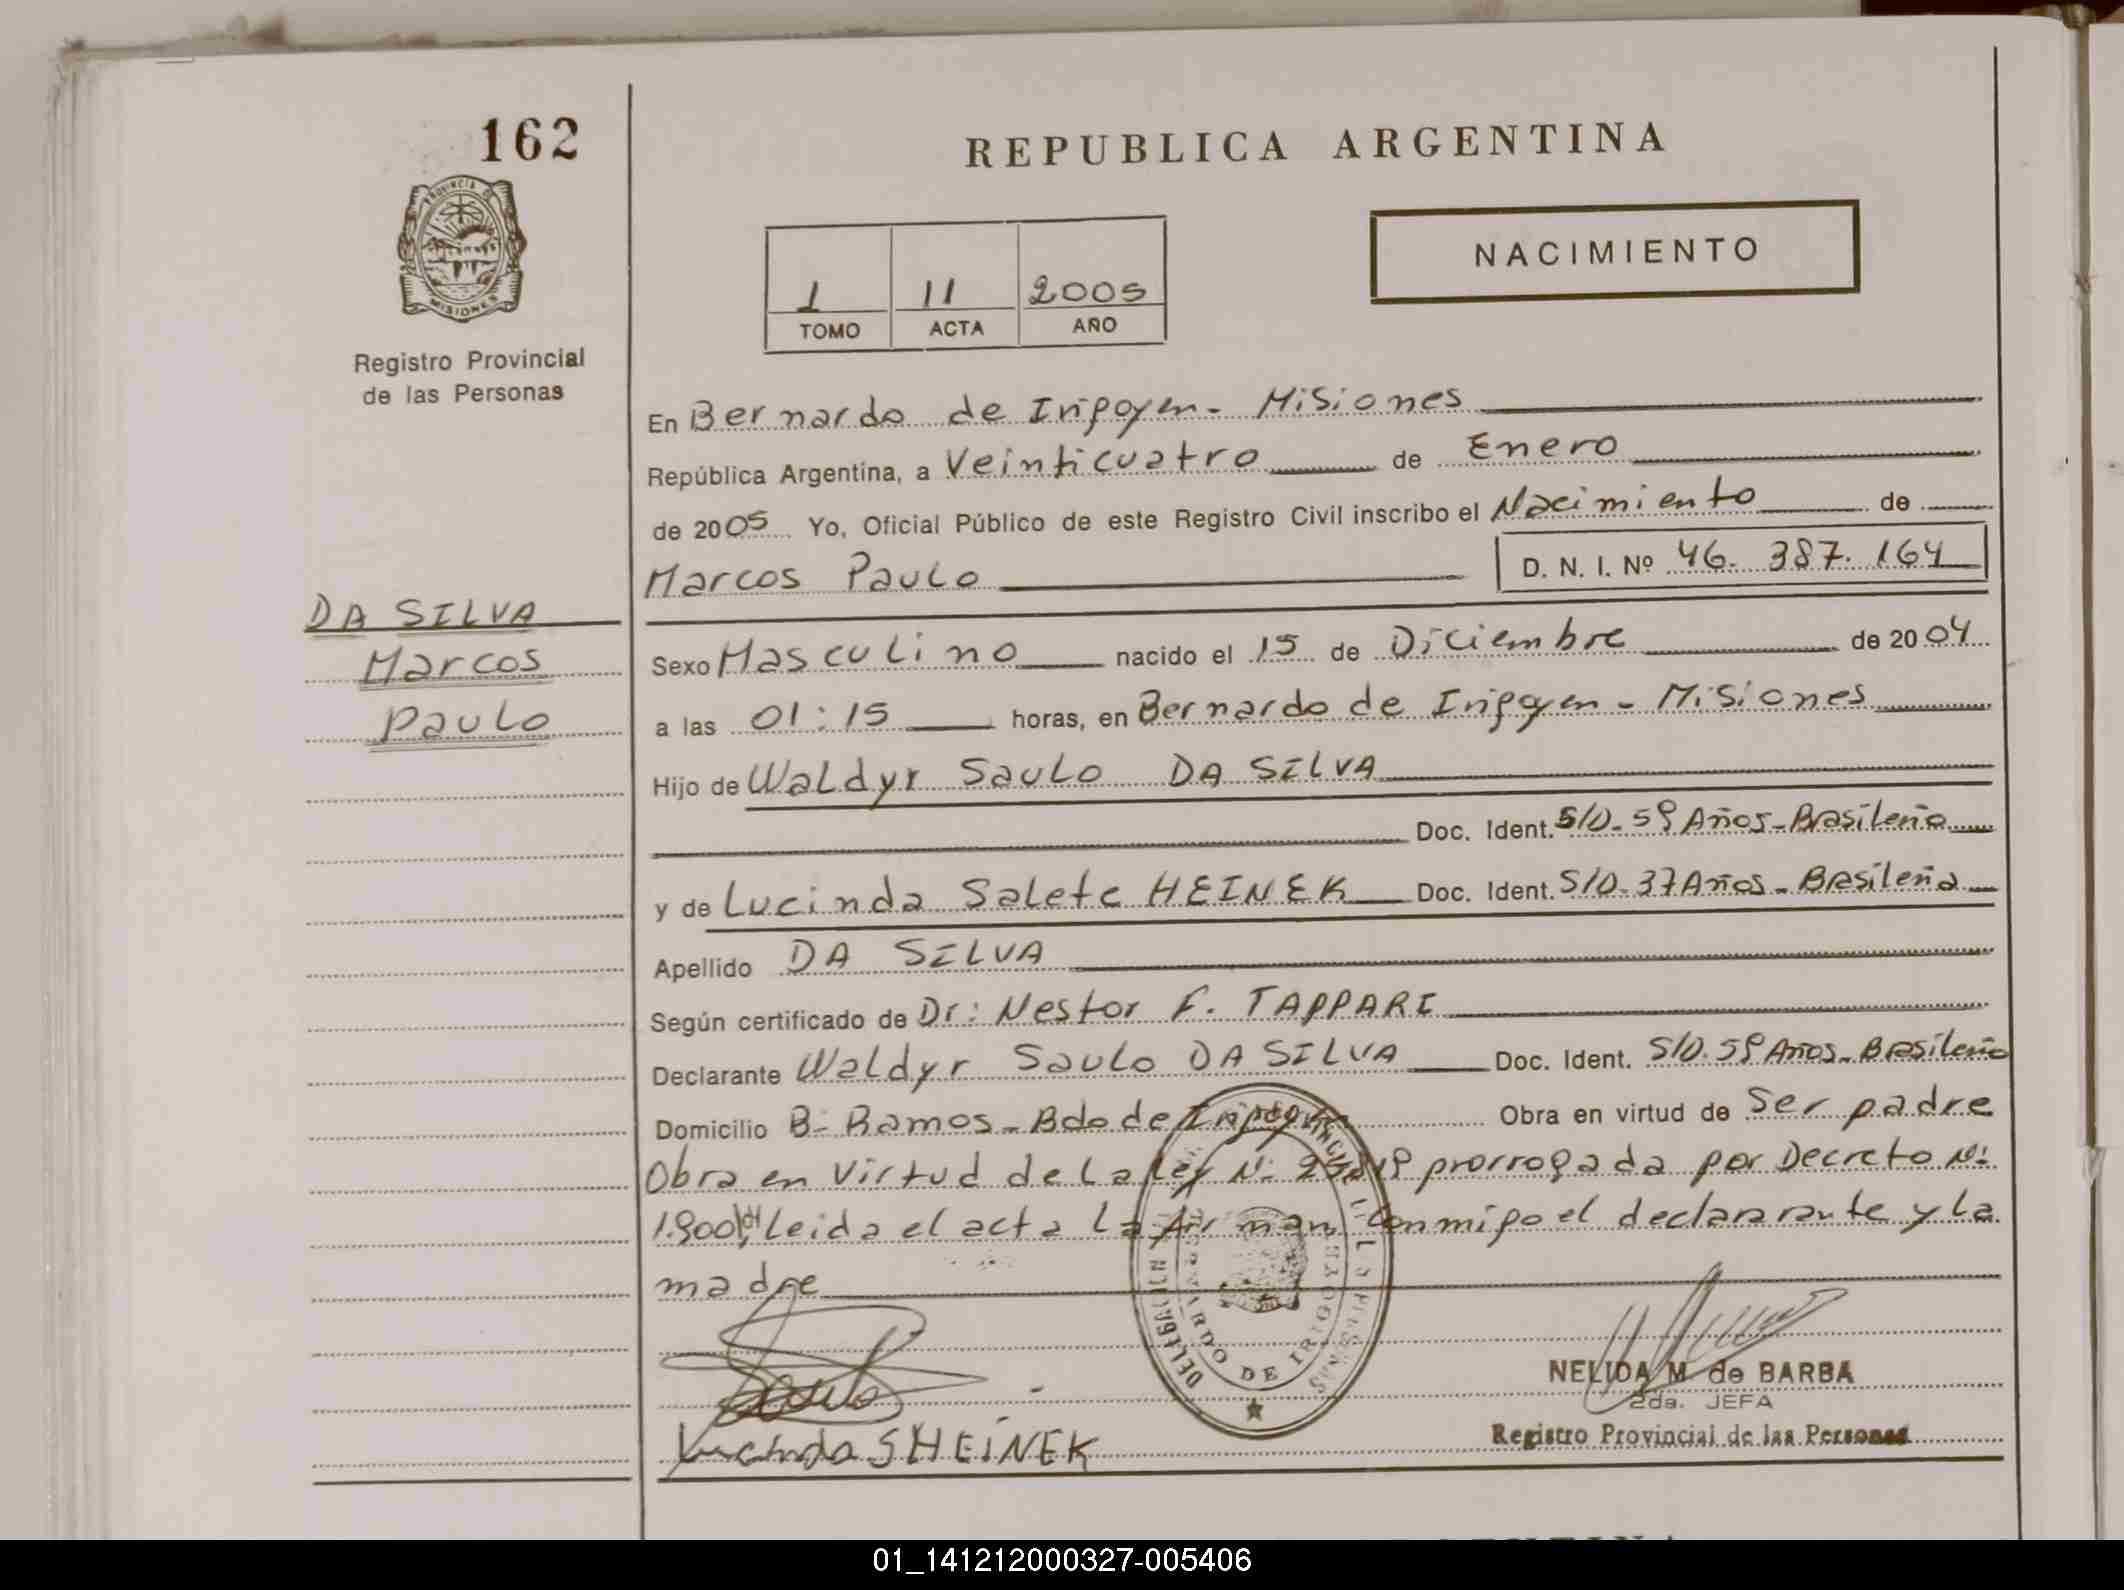 162
REPUBLICA ARGENTINA
PROVINCIA DE
MISIONES
Registro Provincial
de las Personas
1 11 2005
TOMO ACTA AÑO
NACIMIENTO
En Bernardo de Irigoyen - Misiones
República Argentina, a Veinticuatro de Enero
de 2005 Yo, Oficial Público de este Registro Civil inscribo el Nacimiento de
Marcos Paulo D. N. I. Nº 46.387.164
DA SILVA
Marcos
Paulo
Sexo Masculino nacido el 15 de Diciembre de 2004
a las 01:15 horas, en Bernardo de Irigoyen - Misiones
Hijo de Waldyr Saulo DA SILVA
Doc. Ident. S/D - 59 Años - Brasileño
y de Lucinda Salete HEINEK Doc. Ident. S/D - 37 Años - Brasileña
Apellido DA SILVA
Según certificado de Dr: Nestor F. TAPPARI
Declarante Waldyr Saulo DA SILVA Doc. Ident. S/D. 59 Años - Brasileño
Domicilio Bº Ramos - Bdo de Irigoyen Obra en virtud de Ser padre
Obra en Virtud de La Ley Nº 25819 prorrogada por Decreto Nº
1.900/04 Leida el acta La firman Conmigo el declararante y La
madre
DELEGACION BERNARDO DE IRIGOYEN
NELIDA M. de BARBA
2da. JEFA
Registro Provincial de las Personas
Saulo
Lucinda S HEINEK
01_141212000327-005406